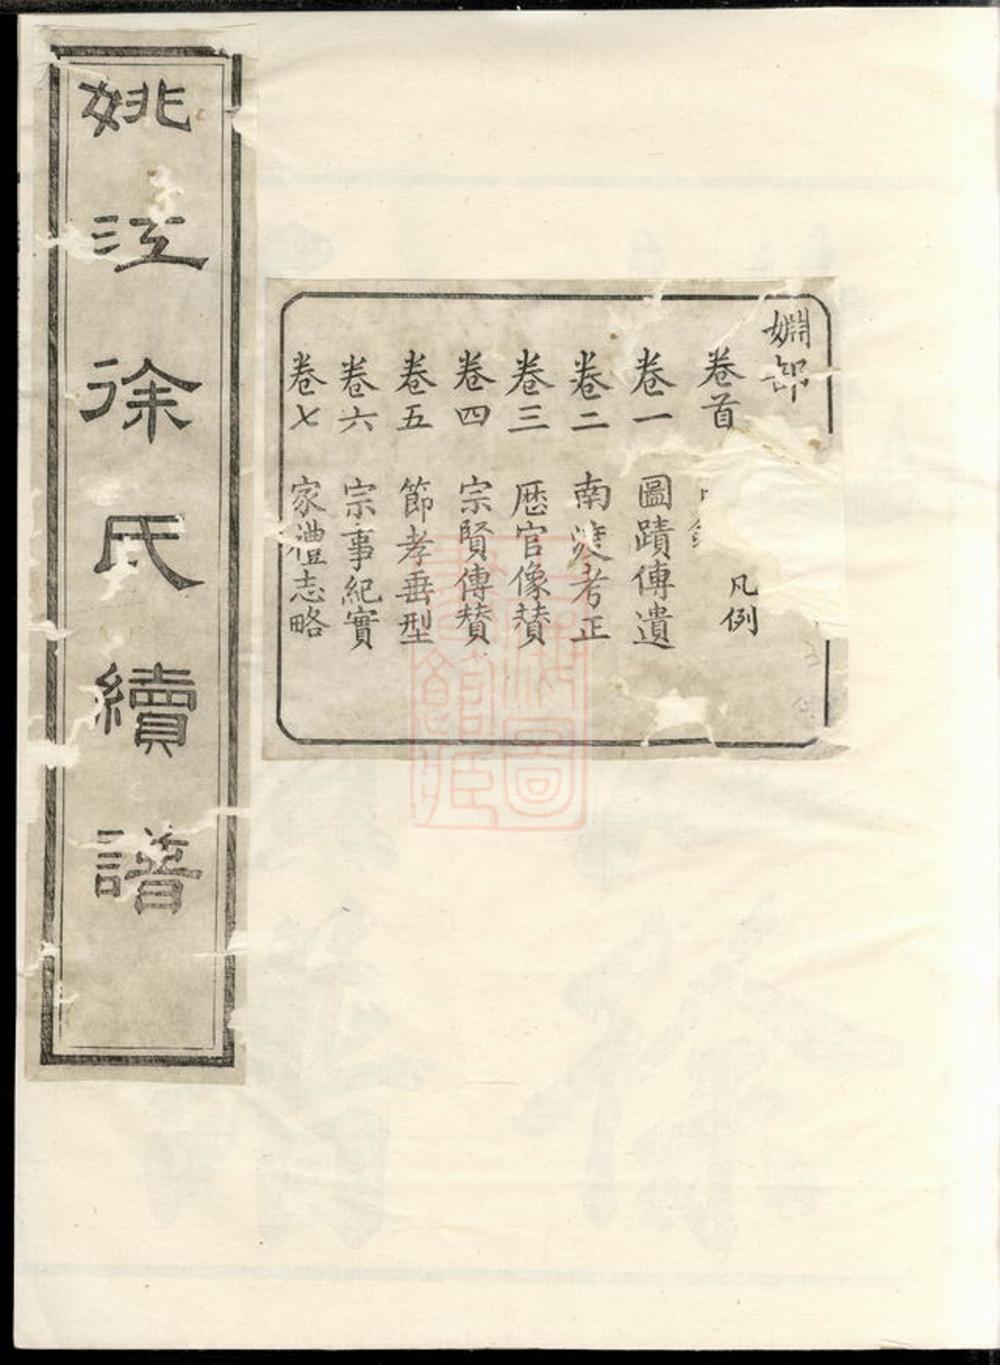 姚江徐氏續譜
卷首
凡例
卷一 圖蹟傳遺
卷二 南渡考正
卷三 歷官像贊
卷四 宗賢傳贊
卷五 節孝垂型
卷六 宗事紀實
卷七 家禮志略
上海圖書館藏